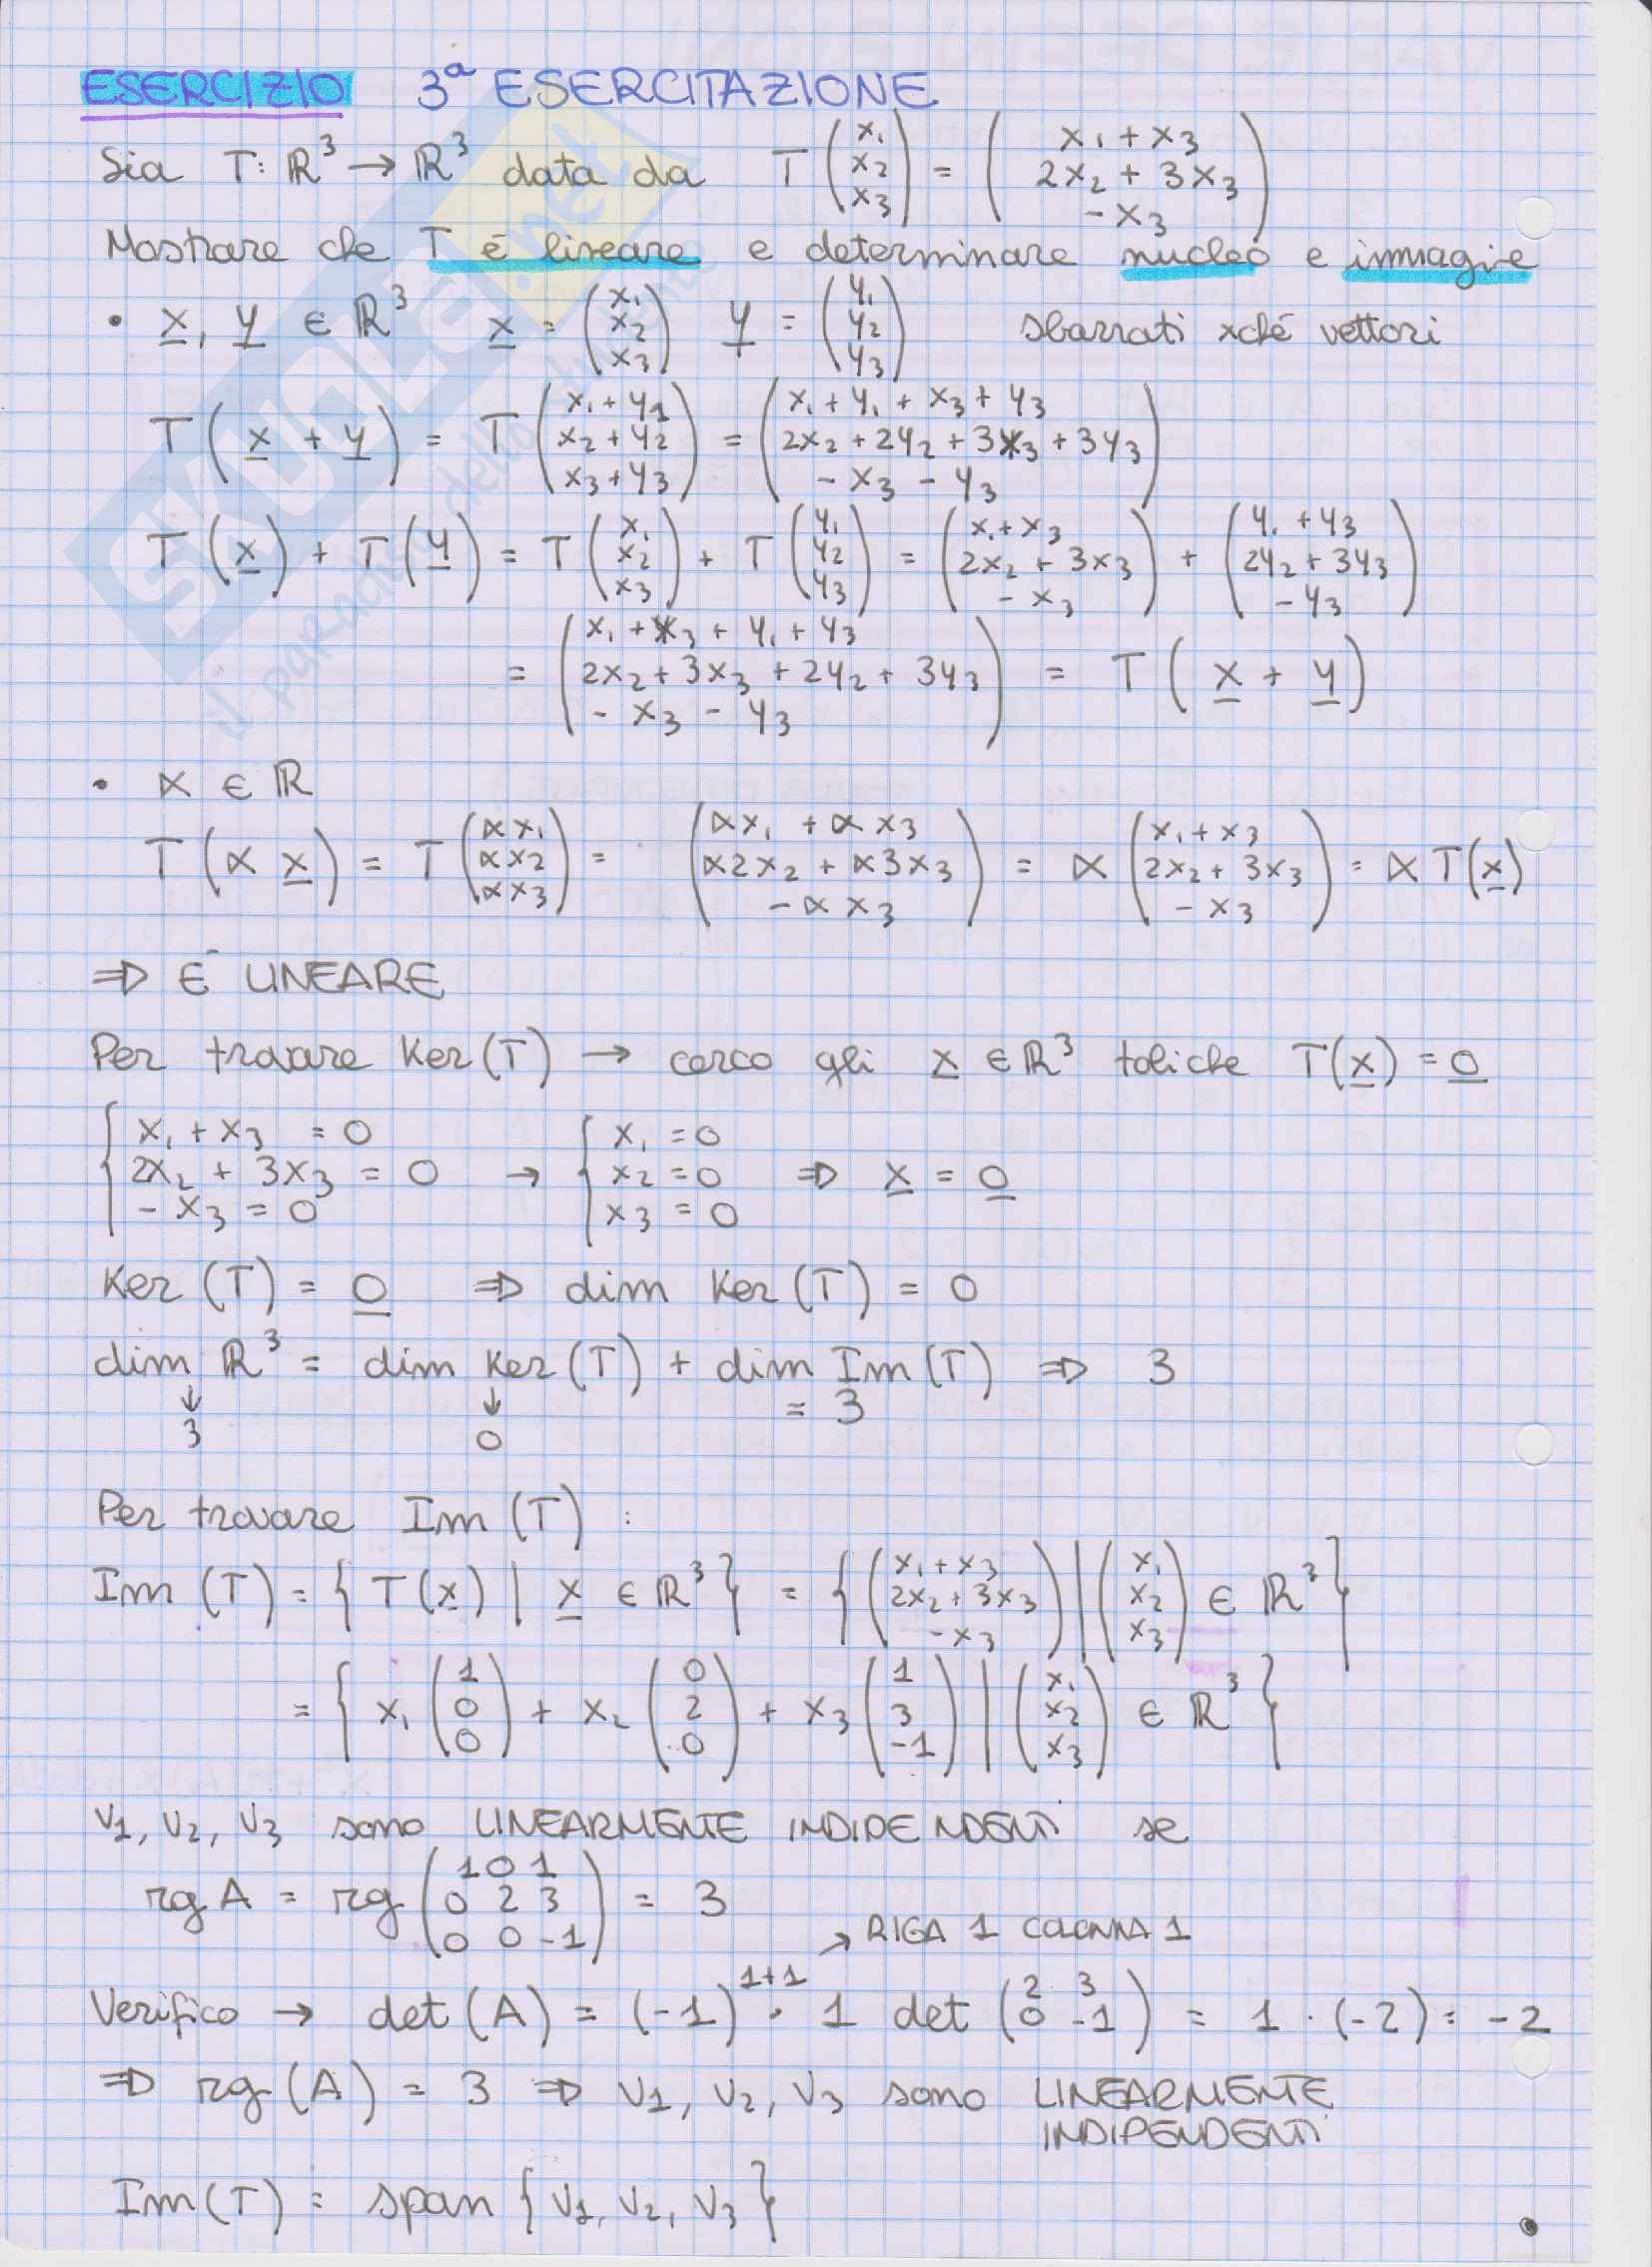 ESERCIZIO 3ª ESERCITAZIONE
Sia T: ℝ³ → ℝ³ data da T (x₁ x₂ x₃) = (x₁ + x₃ 2x₂ + 3x₃ -x₃)
Mostrare che T é lineare e determinare nucleo e immagine
• x, y ∈ ℝ³ x = (x₁ x₂ x₃) y = (y₁ y₂ y₃) sbarrati xché vettori
T (x + y) = T (x₁ + y₁ x₂ + y₂ x₃ + y₃) = (x₁ + y₁ + x₃ + y₃ 2x₂ + 2y₂ + 3x₃ + 3y₃ -x₃ - y₃)
T (x) + T (y) = T (x₁ x₂ x₃) + T (y₁ y₂ y₃) = (x₁ + x₃ 2x₂ + 3x₃ -x₃) + (y₁ + y₃ 2y₂ + 3y₃ -y₃)
= (x₁ + x₃ + y₁ + y₃ 2x₂ + 3x₃ + 2y₂ + 3y₃ -x₃ - y₃) = T (x + y)
• α ∈ ℝ
T (α x) = T (αx₁ αx₂ αx₃) = (αx₁ + αx₃ α2x₂ + α3x₃ -αx₃) = α (x₁ + x₃ 2x₂ + 3x₃ -x₃) = α T(x)
⇒ E' LINEARE
Per trovare Ker(T) → cerco gli x ∈ ℝ³ tali che T(x) = 0
{x₁ + x₃ = 0 2x₂ + 3x₃ = 0 -x₃ = 0 → {x₁ = 0 x₂ = 0 x₃ = 0 ⇒ x = 0
Ker (T) = 0 ⇒ dim Ker (T) = 0
dim ℝ³ = dim Ker (T) + dim Im (T) ⇒ 3
↓ ↓ = 3
3 0
Per trovare Im (T) :
Im (T) = { T(x) | x ∈ ℝ³ } = { (x₁ + x₃ 2x₂ + 3x₃ -x₃) | (x₁ x₂ x₃) ∈ ℝ³ }
= { x₁ (1 0 0) + x₂ (0 2 0) + x₃ (1 3 -1) | (x₁ x₂ x₃) ∈ ℝ³ }
V₁, V₂, V₃ sono LINEARMENTE INDIPENDENTI se
rg A = rg (1 0 1 0 2 3 0 0 -1) = 3
→ RIGA 1 COLONNA 1
Verifico → det (A) = (-1)¹⁺¹ · 1 det (2 3 0 -1) = 1 · (-2) = -2
⇒ rg (A) = 3 ⇒ V₁, V₂, V₃ sono LINEARMENTE
INDIPENDENTI
Im(T) = span {V₁, V₂, V₃}
SKUOLA.net
il paradiso dello studente